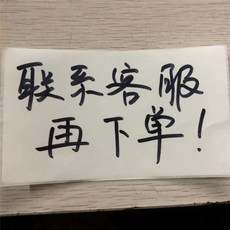 联系客服
再下单!